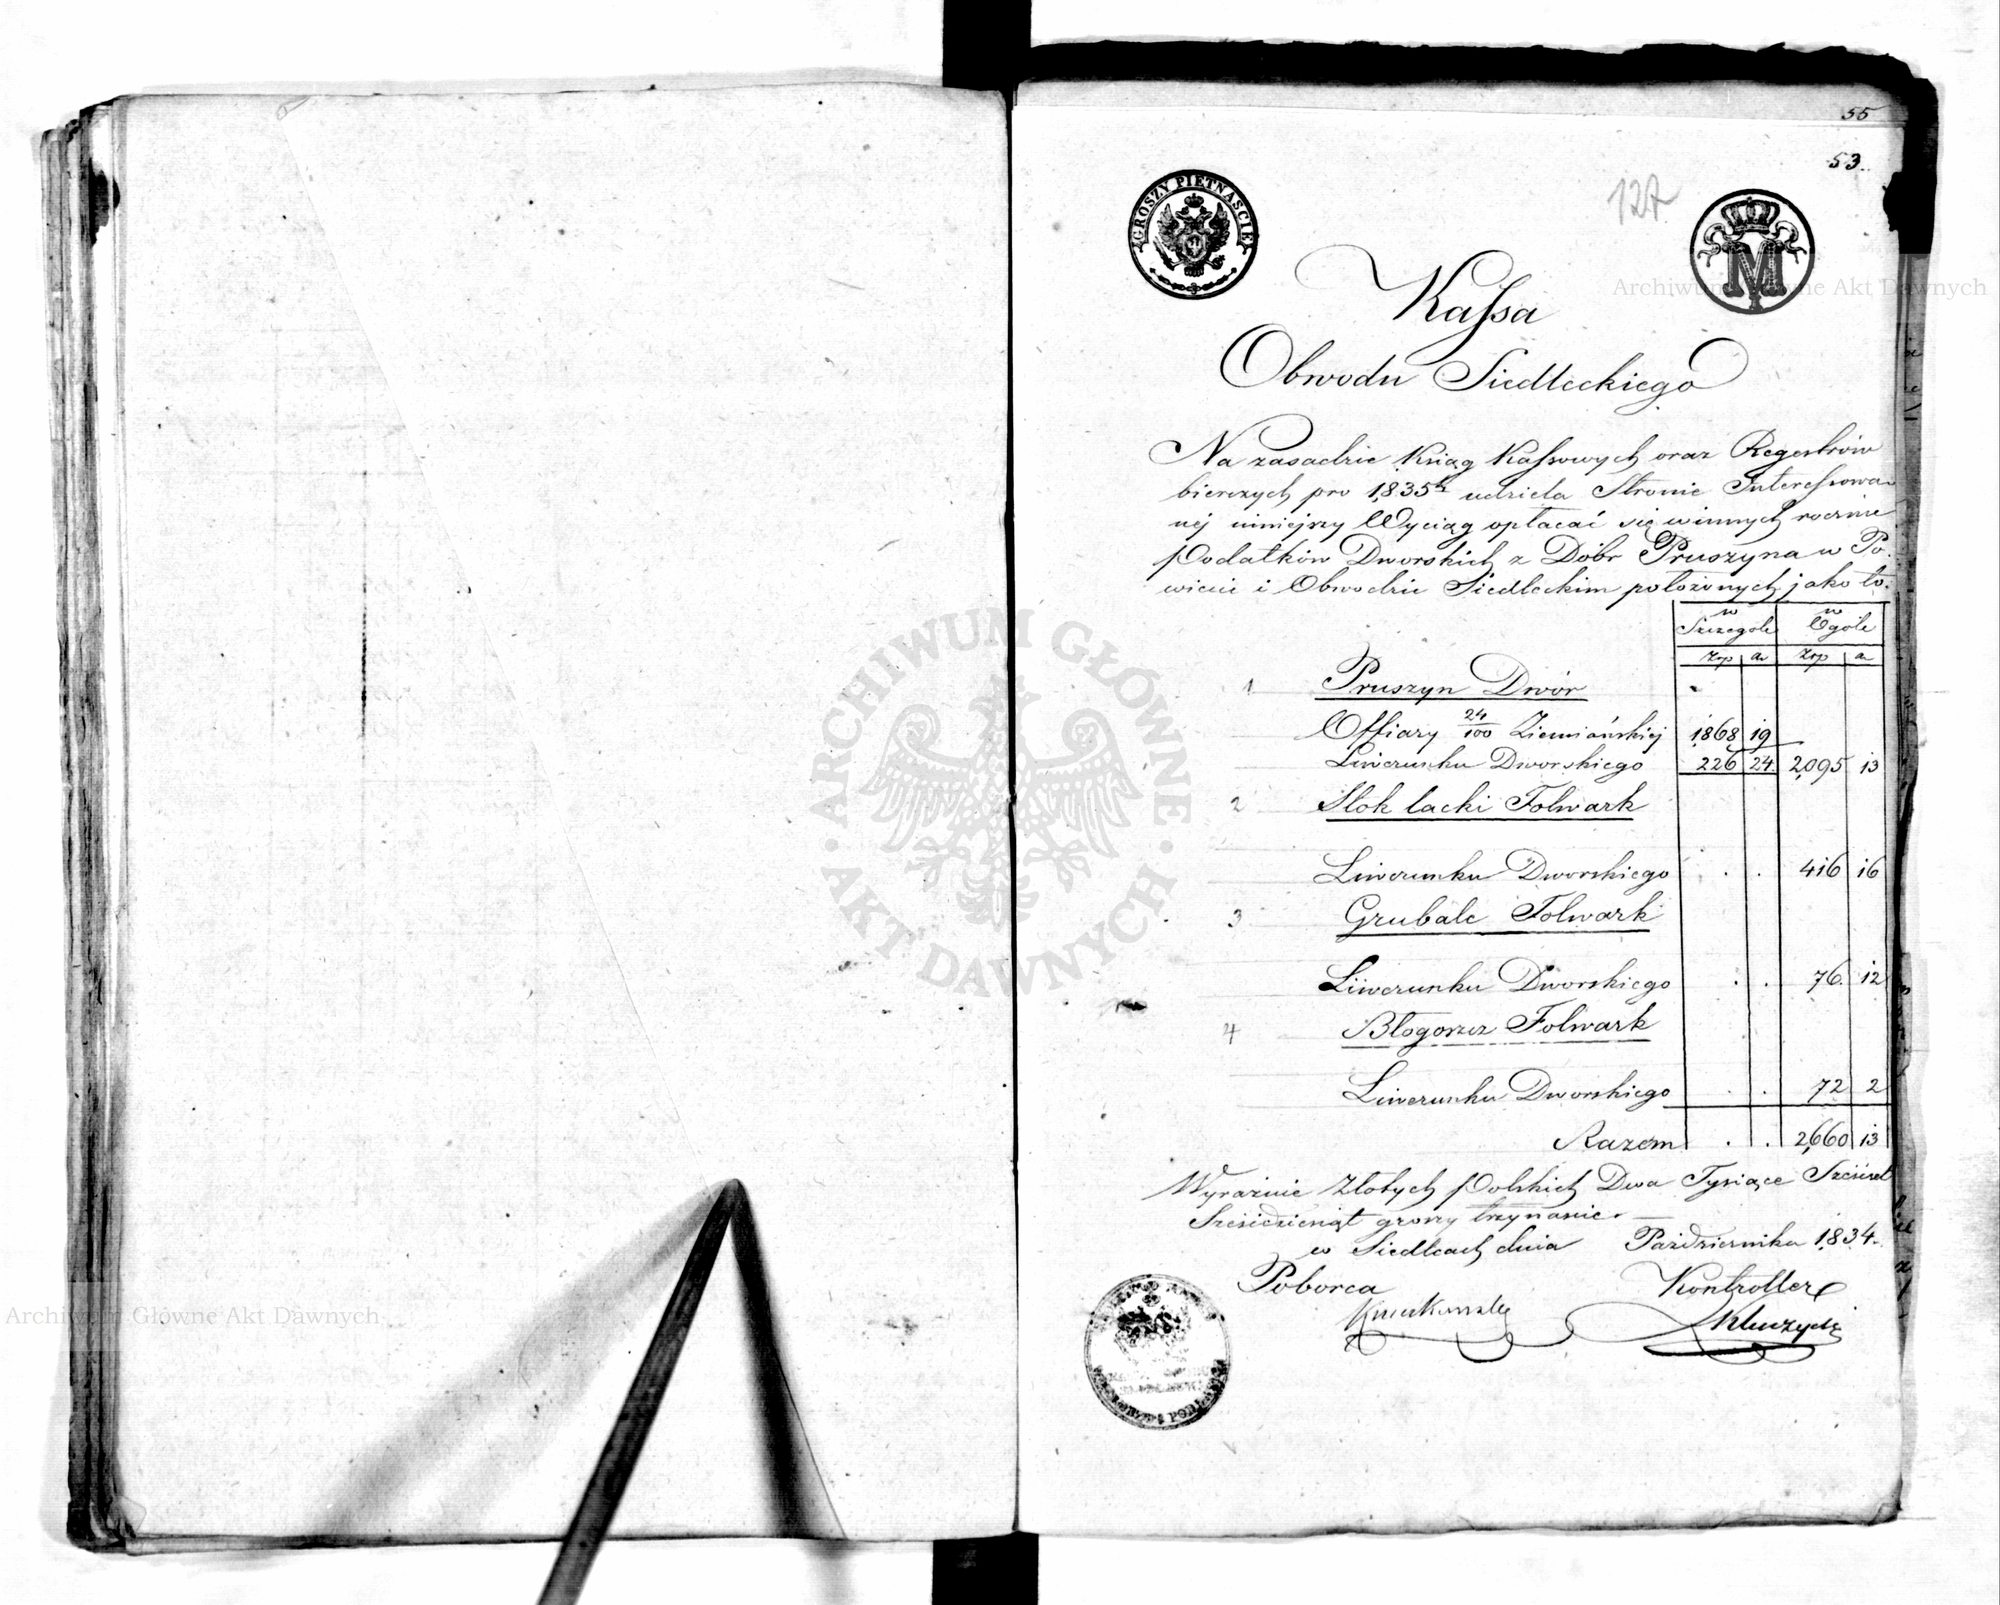 55
53.
127
GROSZY PIETNASCIE
M
Kassa
Obwodu Siedleckiego
Na zasadzie Xsiąg Kassowych oraz Regestrów
bierczych pro 1835 udziela Stronie Interessowa-
nej niniejszy Wyciąg opłacać się winnych rocznie
Podatków Dworskich z Dóbr Pruszyna w Po-
wiecie i Obwodzie Siedleckim położonych jako to.
w Szczegole w Ogóle
Złp gr Złp gr
1 Pruszyn Dwór
Offiary 24/100 Ziemiańskiej 1868 19
Liwerunku Dworskiego 226 24 2,095 13
2 Stok lacki Folwark
Liwerunku Dworskiego . . 416 16
3 Grubale Folwark
Liwerunku Dworskiego . . 76 12
4 Błogoszcz Folwark
Liwerunku Dworskiego . . 72 2
Razem . . 2,660 13
Wyraźnie Złotych Polskich Dwa Tysiące Sześćset
Sześćdziesiąt groszy trzynaście
w Siedlcach dnia Października 1834
Poborca Kontroller
Archiwum Główne Akt Dawnych
ARCHIWUM GŁÓWNE AKT DAWNYCH
Archiwum Główne Akt Dawnych